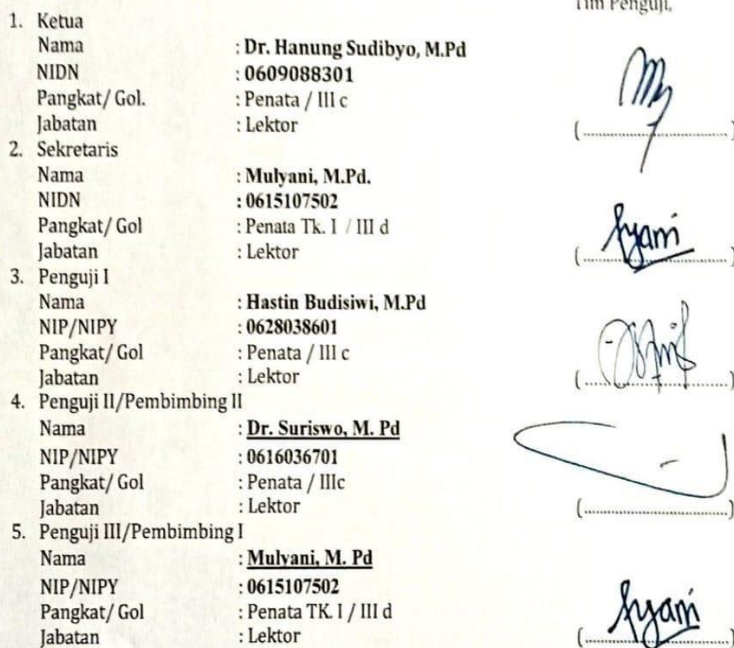 Tim Penguji,
1. Ketua
Nama : Dr. Hanung Sudibyo, M.Pd
NIDN : 0609088301
Pangkat/ Gol. : Penata / III c
Jabatan : Lektor
(..............................)
2. Sekretaris
Nama : Mulyani, M.Pd.
NIDN : 0615107502
Pangkat/ Gol : Penata Tk. I / III d
Jabatan : Lektor
(..............................)
3. Penguji I
Nama : Hastin Budisiwi, M.Pd
NIP/NIPY : 0628038601
Pangkat/ Gol : Penata / III c
Jabatan : Lektor
(..............................)
4. Penguji II/Pembimbing II
Nama : Dr. Suriswo, M. Pd
NIP/NIPY : 0616036701
Pangkat/ Gol : Penata / IIIc
Jabatan : Lektor
(..............................)
5. Penguji III/Pembimbing I
Nama : Mulyani, M. Pd
NIP/NIPY : 0615107502
Pangkat/ Gol : Penata TK. I / III d
Jabatan : Lektor
(..............................)